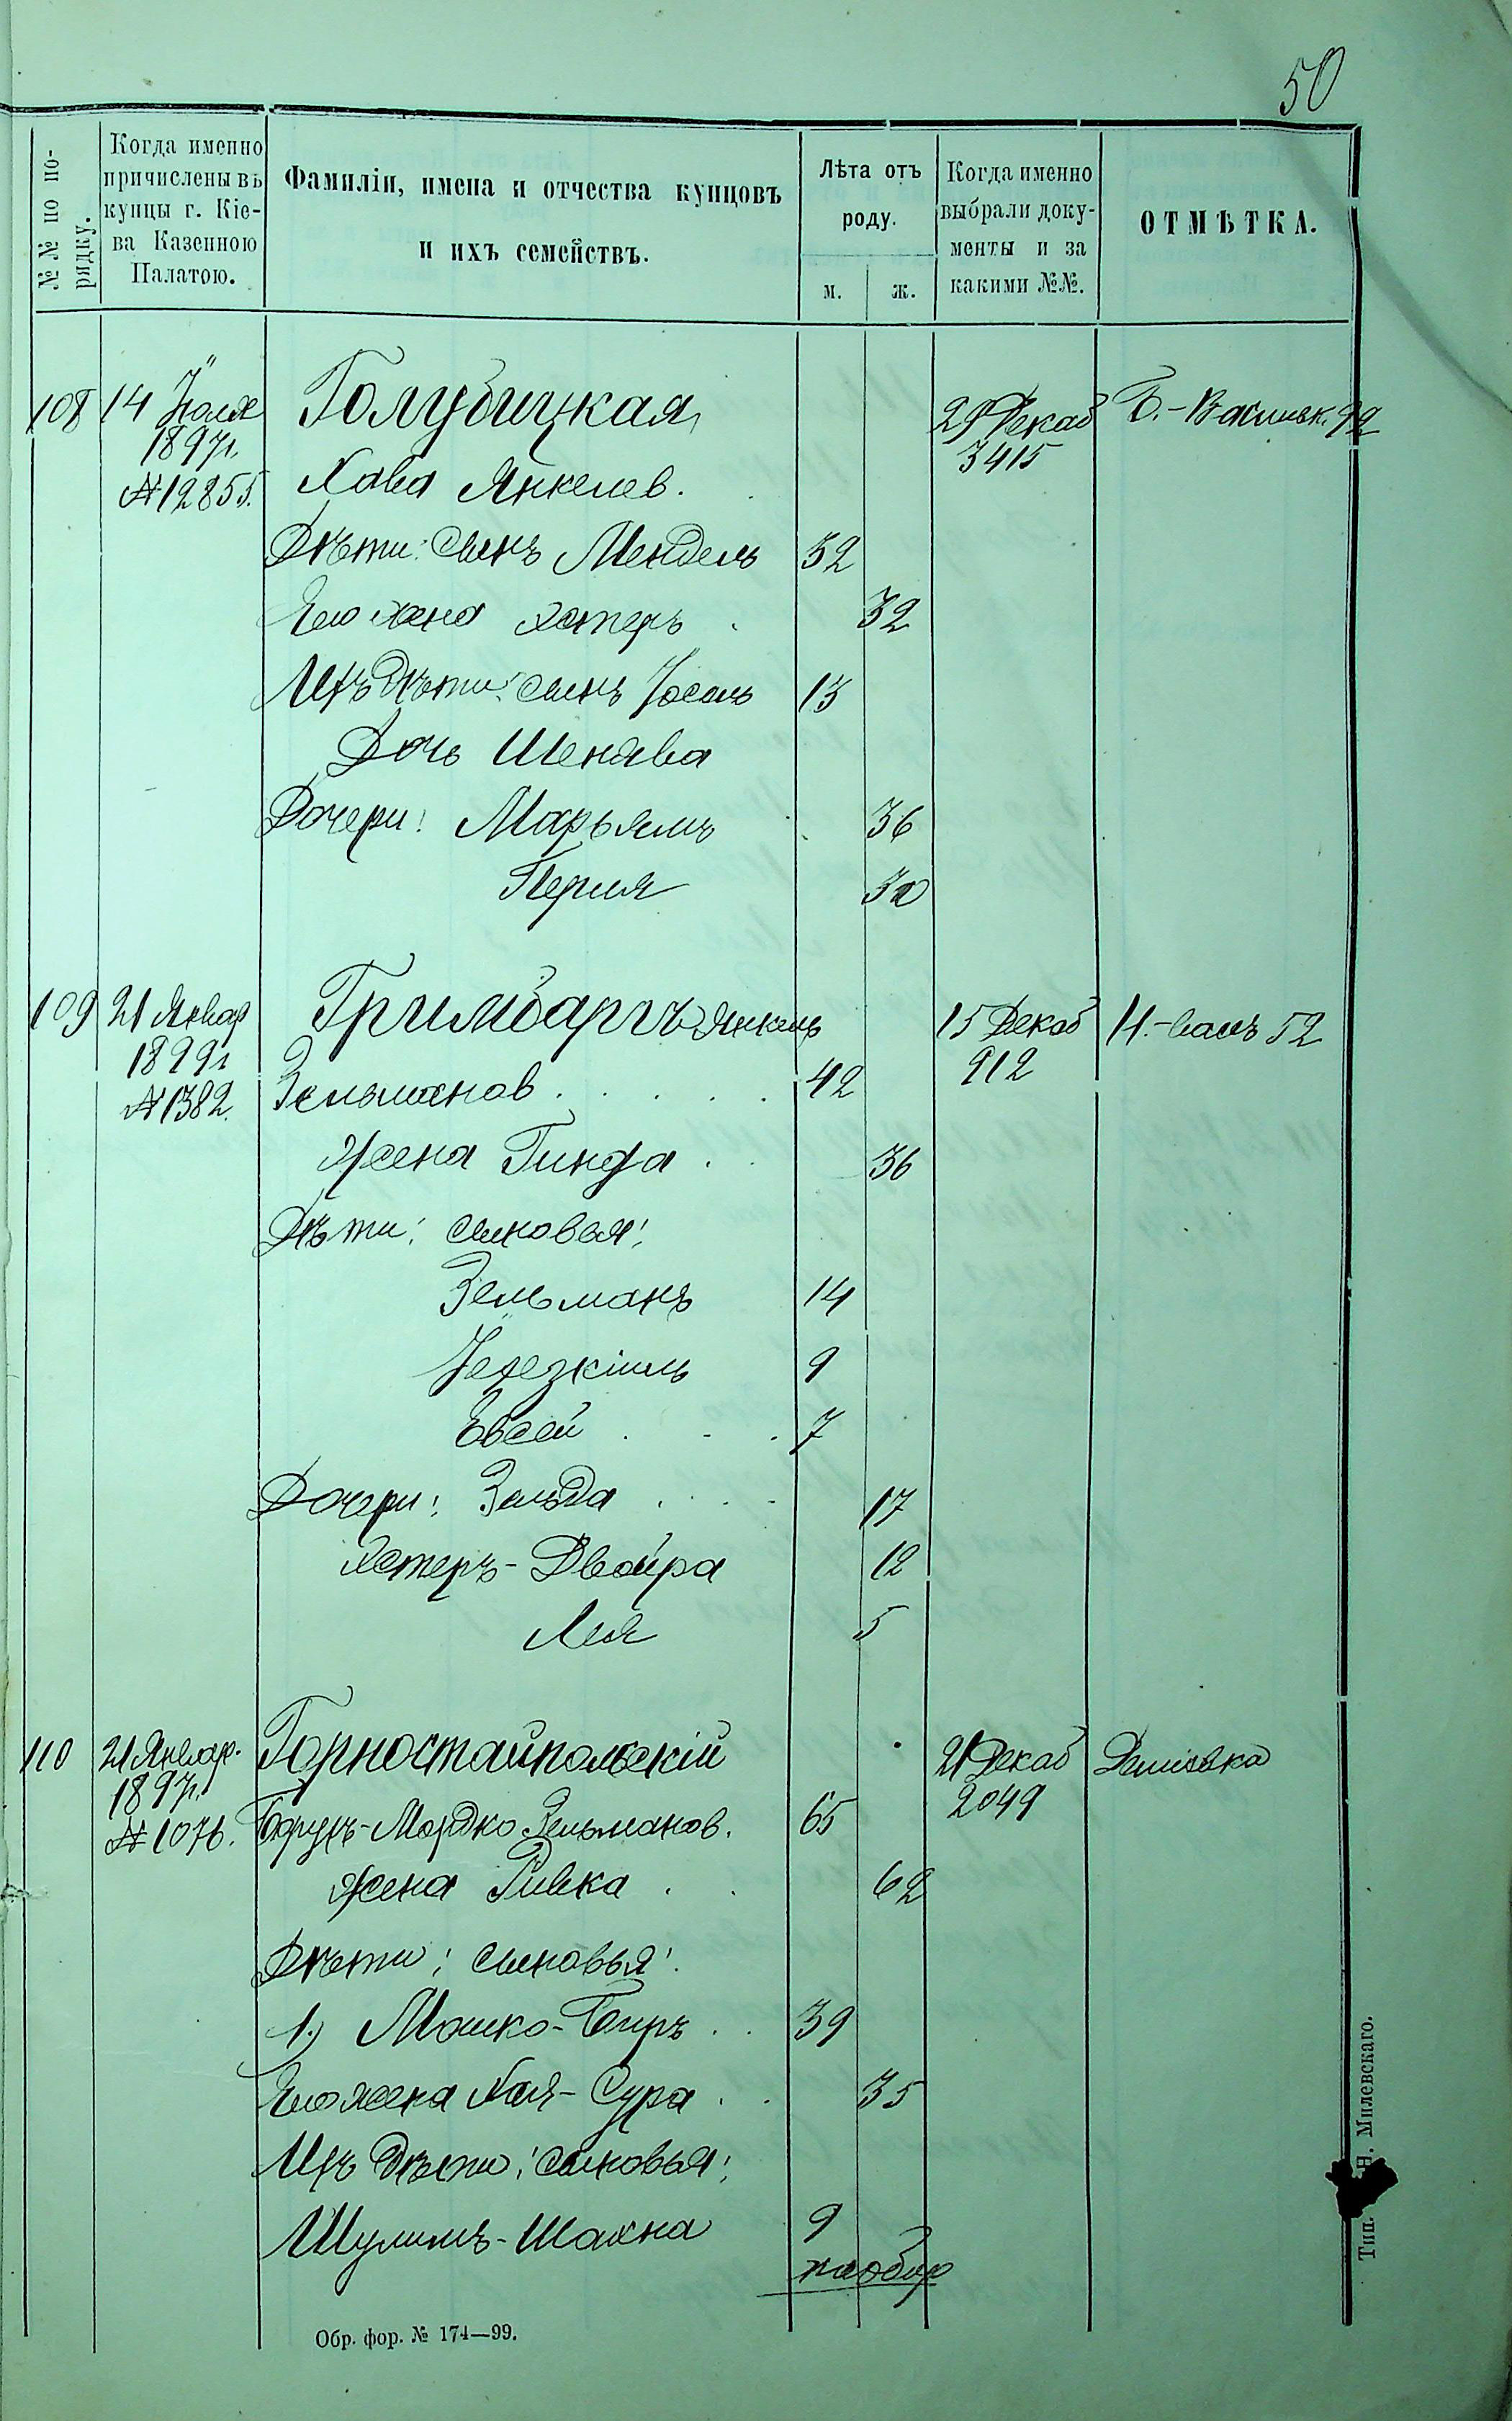 50
№№ по по-
рядку.
Когда именно
причислены въ
купцы г. Кіе-
ва Казенною
Палатою.
Фамиліи, имена и отчества купцовъ
и ихъ семействъ.
Лѣта отъ
роду.
м. ж.
Когда именно
выбрали доку-
менты и за
какими №№.
ОТМѢТКА.
108 14 Іюля Голубицкая 29 Декаб Б.-Васильк. 92
1897г. 3415
№12855. Хава Янкелев.
Дѣти: сынъ Мендель 52
Его жена Эстеръ 32
Ихъ дѣти: сынъ Іосель 13
Дочь Шенява
Дочери: Марьямъ 36
Перля 30
109 21 Январ Гримбаргъ Янкель 15 Декаб Н.-валъ 52
1899г 912
№1382. Зельманов 42
Жена Гинда 36
Дѣти: сыновья:
Зельманъ 14
Іехезкіиль 9
Евсей 7
Дочери: Зельда 17
Эстеръ-Двойра 12
Лея 5
110 21 Январ. Горностайпольскій 21 Декаб Деміевка
1897г. 2049
№1076. Борухъ-Мордко Зельманов. 65
жена Ривка 62
Дѣти: сыновья:
1.) Мошко-Беръ 39
Его жена Хая-Сура 35
Ихъ дѣти: сыновья:
Шулимъ-Шахна 9
на обор
Обр. фор. № 174—99.
Тип. Н. Милевскаго.